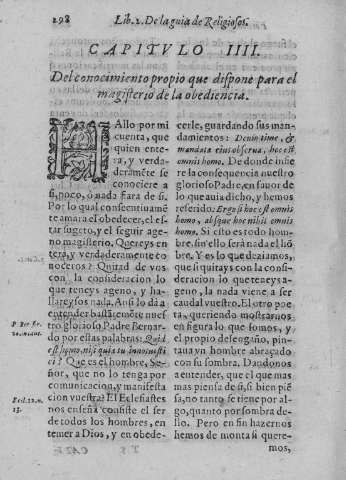 298 Lib. 2. De la guia de Religiosos.
CAPITVLO IIII.
Del conocimiento propio que dispone para el
magisterio de la obediencia.
HAllo por mi
cuenta, que
quien ente-
ra, y verda-
deramẽte se
conociere a
si, poco, ò nada fiara de si.
Por lo qual consentiuamẽ
te amara el obedecer, el es-
tar sugeto, y el seguir age-
no magisterio. Quereys en
tera, y verdaderamente co
noceros? Quitad de vos
con la consideracion lo
que teneys ageno, y ha-
llareysos nada. Asi lo dà a
entender bastãtemẽte nues
tro glorioso Padre Bernar-
do por estas palabras: Quid
est homo, nisi quia tu innotuisti
ei? Que es el hombre, Se-
ñor, que no lo tenga por
comunicacion, y manifesta
cion vuestra? El Eclesiastes
nos enseña consiste el ser
de todos los hombres, en
temer a Dios, y en obede-
P. Ber. ser.
Eccl. 12. n.
13.
cerle, guardando sus man-
damientos: Deum time, &
mandata eius obserua, hoc est
omnis homo. De donde infie
re la consequencia nuestro
glorioso Padre, en fauor de
lo que auia dicho, y hemos
referido: Ergo si hoc est omnis
homo, absque hoc nihil omnis
homo. Si esto es todo hom-
bre, sin ello serà nada el hõ
bre. Y es lo que deziamos,
que si quitays con la consi-
deracion lo que teneys a-
geno, la nada viene a ser
caudal vuestro. El otro poe
ta, queriendo mostrarnos
en figura lo que somos, y el
propio desengaño, pin-
taua vn hombre abraçado
con su sombra. Dandonos
a entender, que el que mas
mas piensa de si, si bien piẽ
sa, no tanto se tiene por al-
go, quanto por sombra de-
llo. Pero en fin hazernos
hemos de monta si quere-
mos,